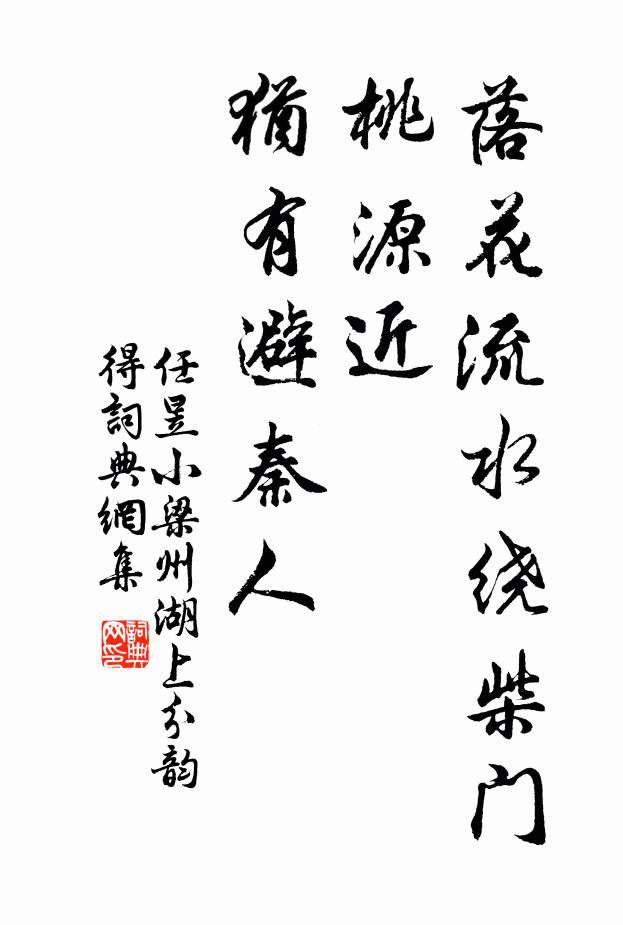 落花流水绕柴门
桃源近
犹有避秦人
任昱小梁州湖上分韵
得詞典網集
詞典
网印